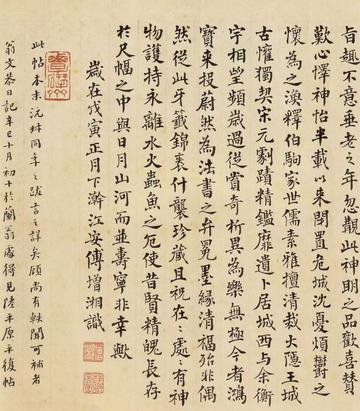 旨趣不意垂老之年忽觀此神明之品歡喜贊
歎心懌神怡半載以來閉置危城沈憂煩鬱之
懷為之渙釋伯駒家世儒素雅擅清裁大隱王城
古懽獨契宋元劇蹟精鑑靡遺卜居城西與余衡
宇相望頻歲過從賞奇析異為樂無極今者鴻
寶來投蔚然為法書之弁冕墨緣清福殆非偶
然從此牙籤錦裹什襲珍藏且祝在々處々有神
物護持永離水火蟲魚之厄使昔賢精魄長存
於尺幅之中與日月山河而並壽寧非幸歟
歲在戊寅正月下澣江安傅增湘識
此帖本末沅叔同年之跋言之詳矣顧尚有軼聞可補者
翁文恭日記辛巳十月初十於蘭翁處得見陸平原平復帖